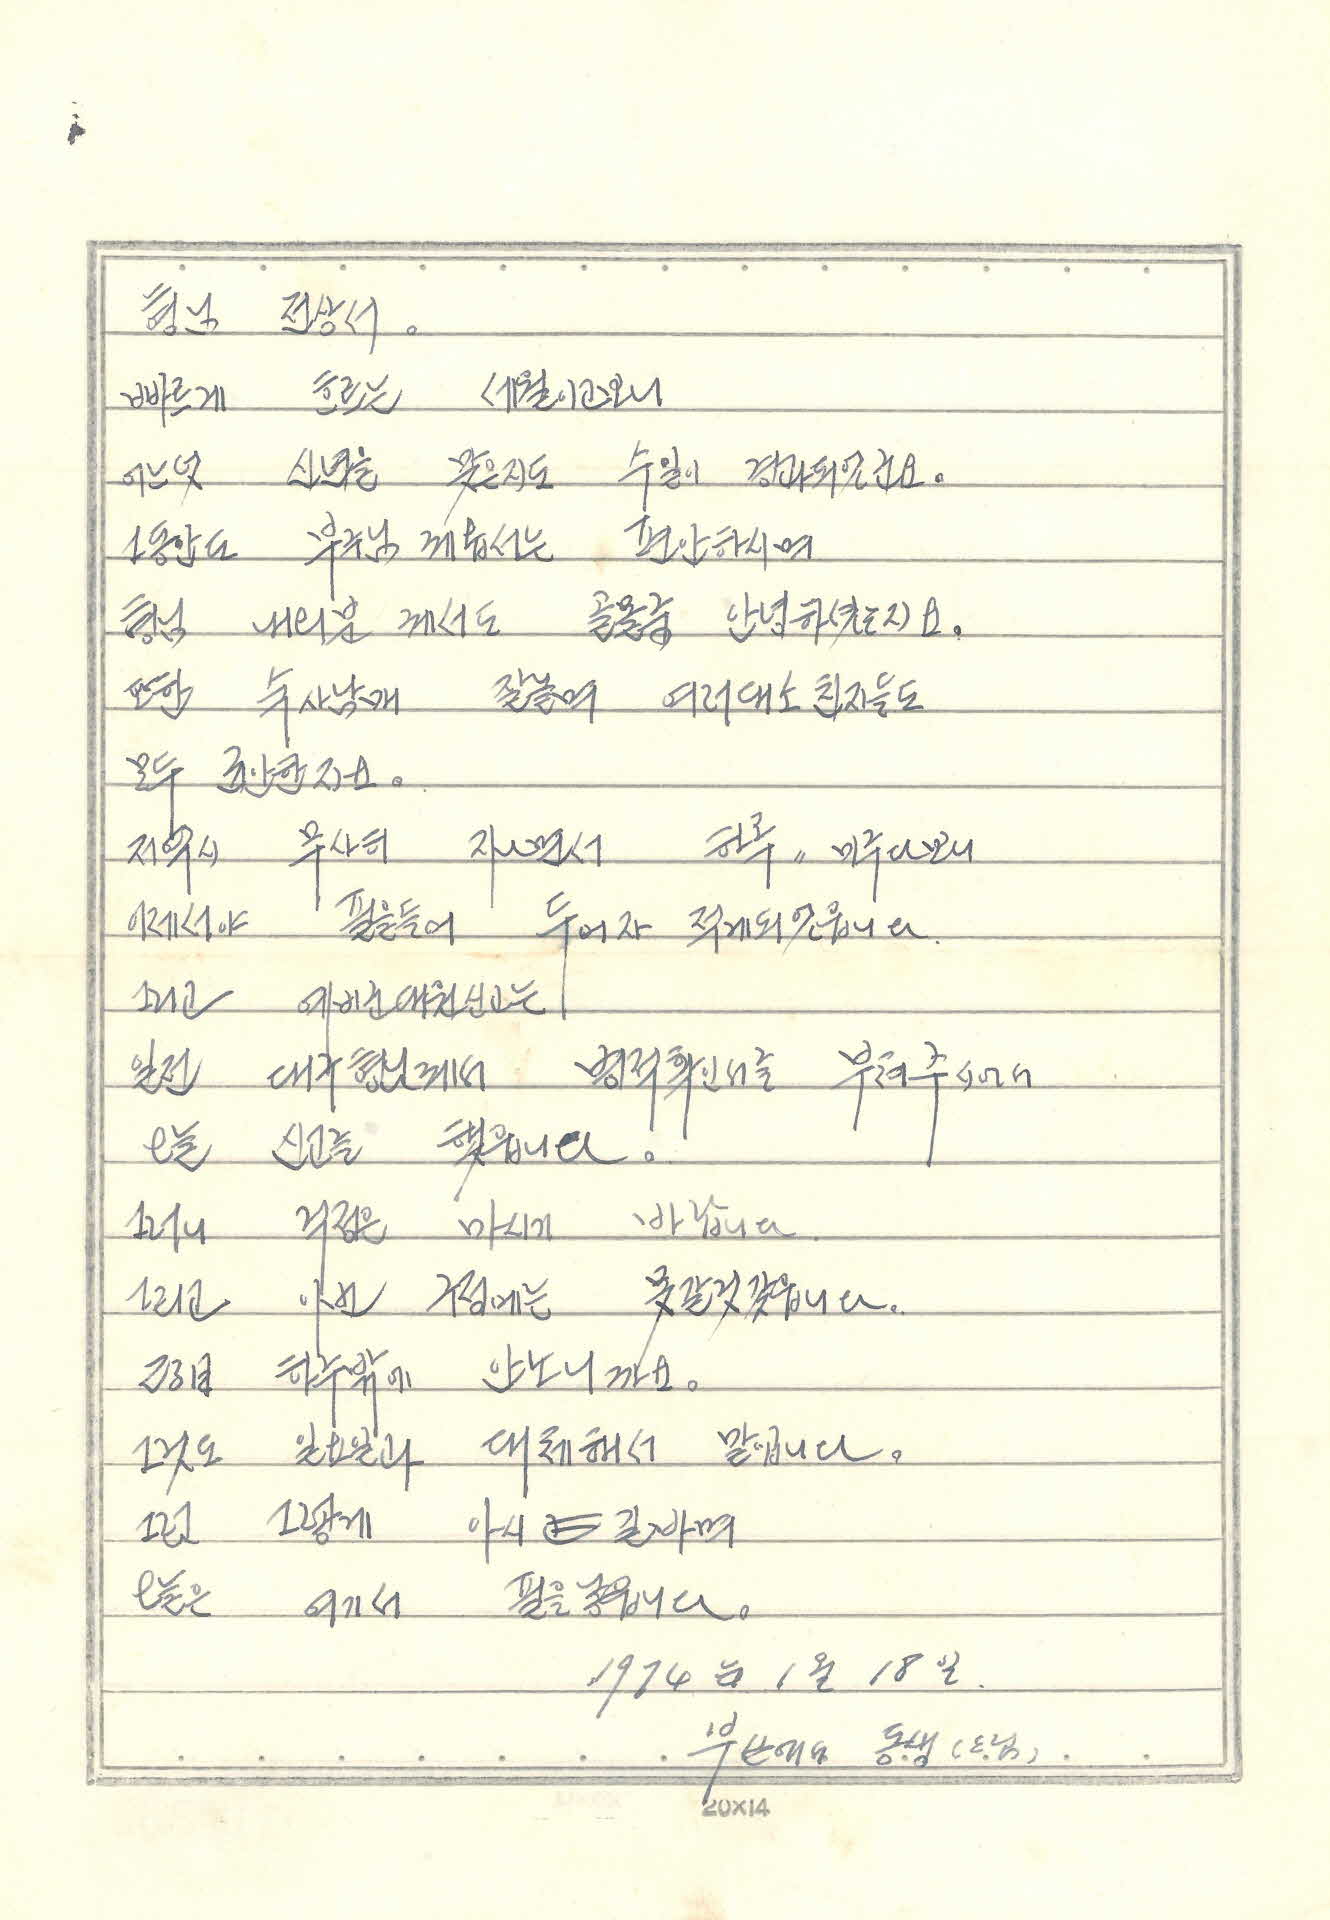 형님 전상서.
빠르게 흐르는 세월이고보니
어느덧 신년을 맞은지도 수일이 경과되였군요.
그동안도 부주님 께옵서는 편안하시며
형님 내외분 께서도 안녕하셨는지요.
또한 수사남매 잘놀며 여러대소 친지들도
모두 안한지요.
저역시 무사히 지나면서 하루〃 미루다보니
이제서야 필을들어 두어자 적게되였읍니다.
그리고 예비군대원신고는
일전 대구형님께서 병적확인서를 부쳐주시여서
오늘 신고를 했읍니다.
그러니 걱정은 마시기 바랍니다.
그리고 이번 구정에는 못갈것 같읍니다.
23日 하루밖에 안노니까요.
그것도 일요일과 대체해서 말입니다.
그럼 그렇게 아시 길 바라며
오늘은 여기서 필을 놓읍니다.
1974년 1월 18일.
부산에서 동생
20X14